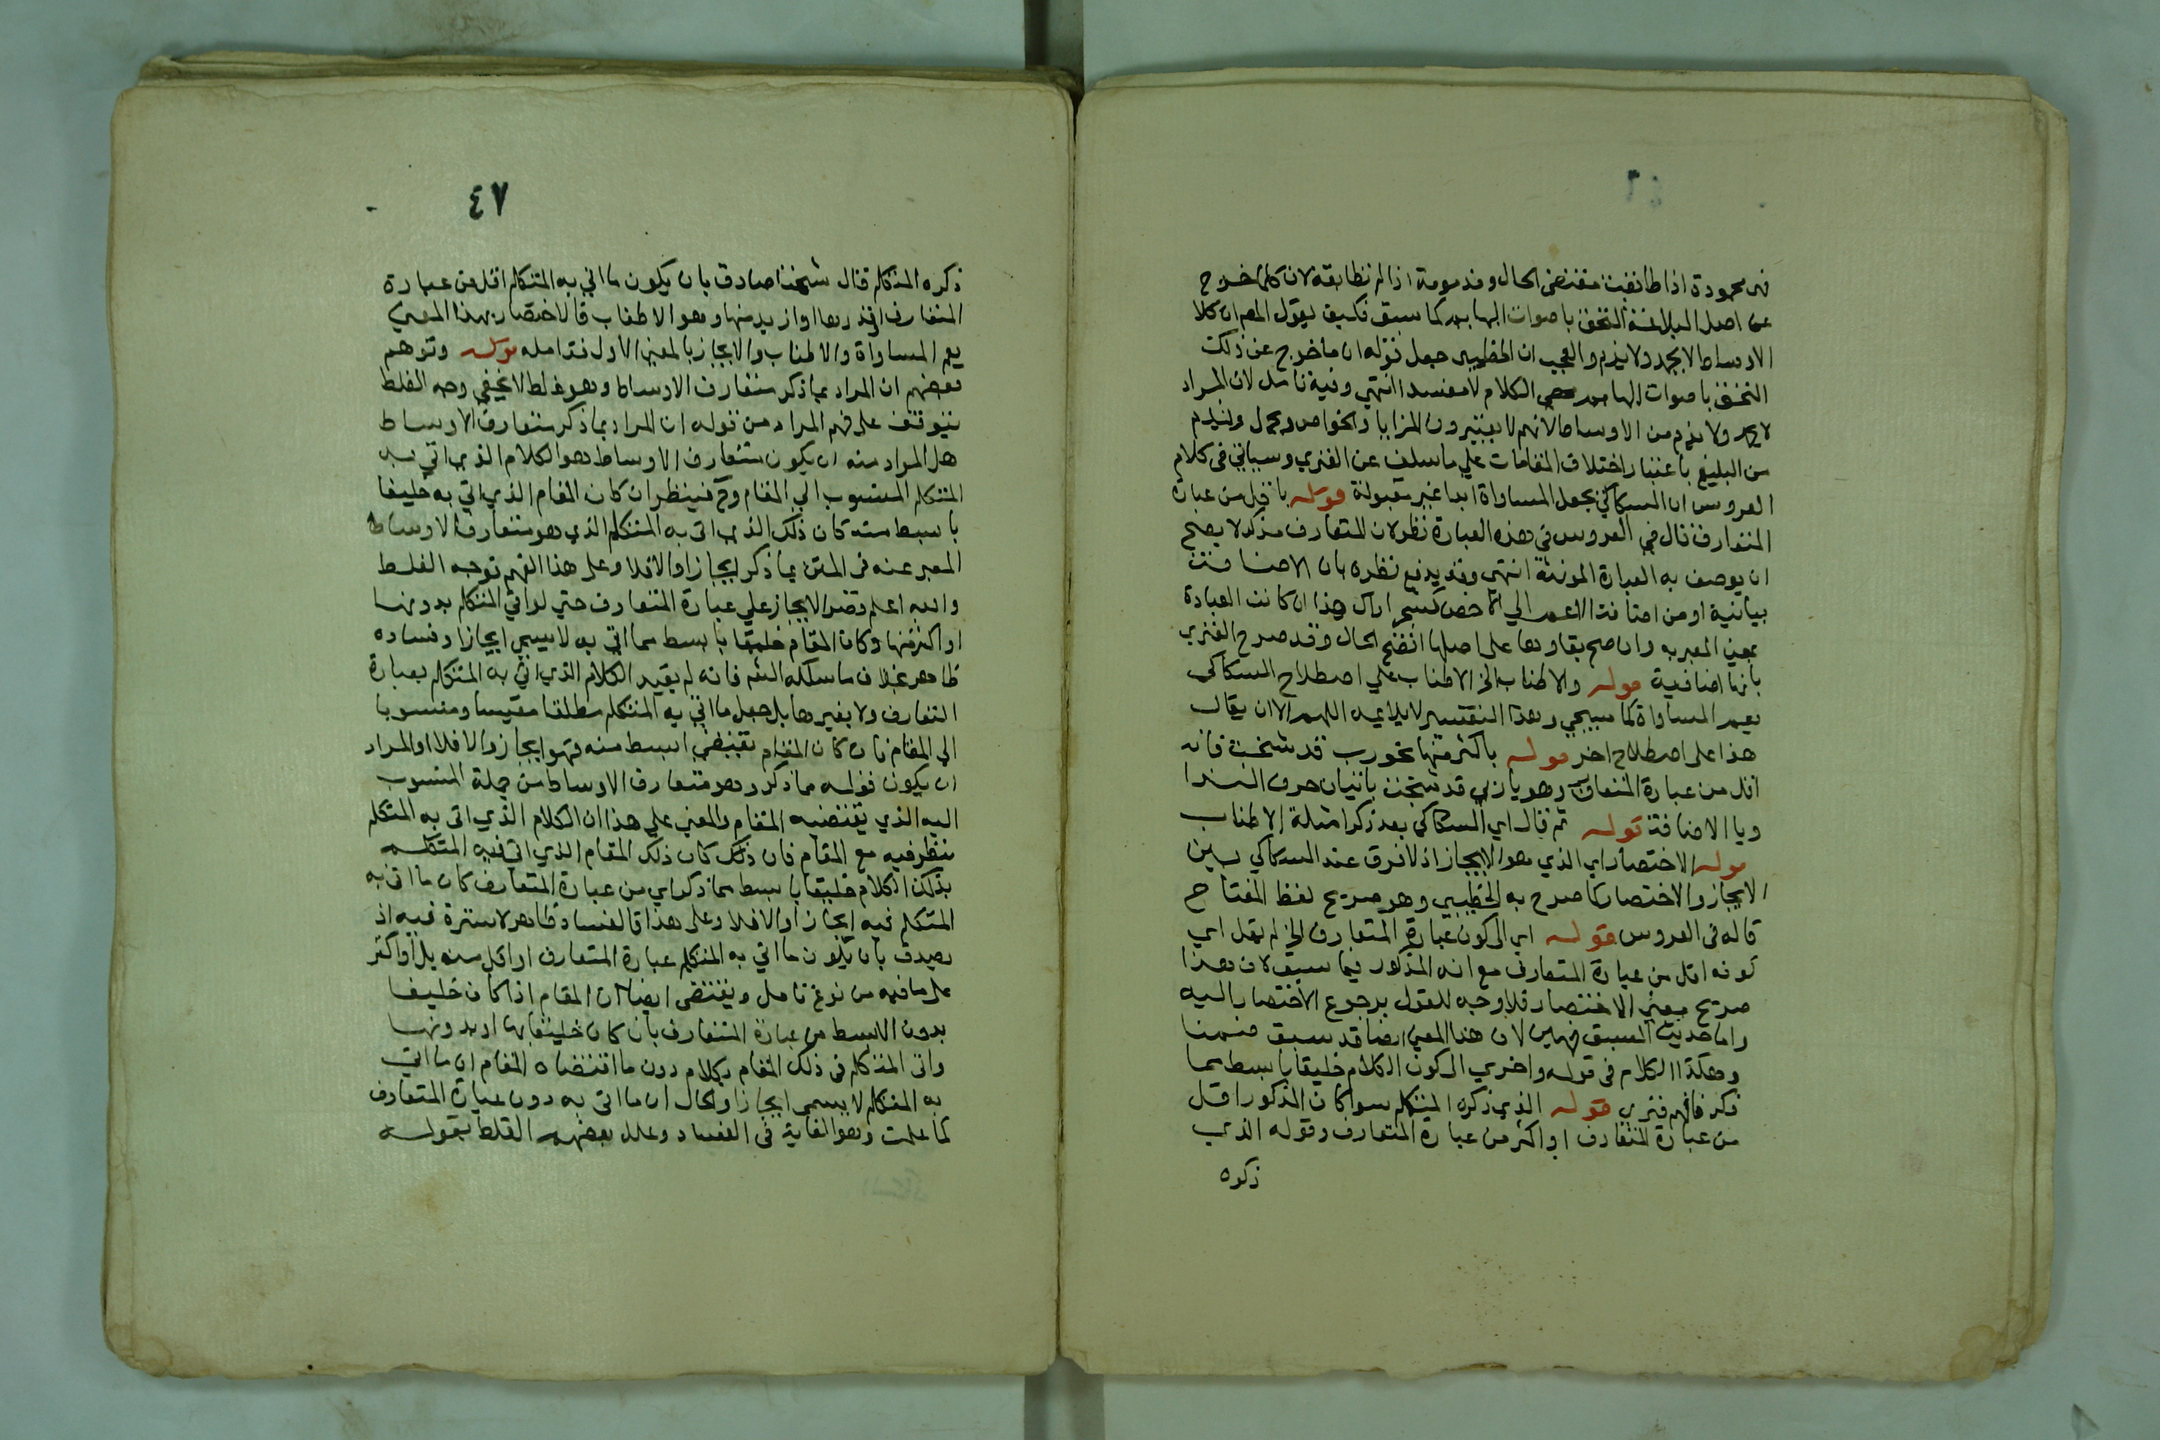 فى محمودة اذا طابقت مقتضى الحال ومذمومة اذا لم تطابقه لان كلما خرج
عن اصل البلاغة التحق باصوات البهايم كما سبق فكيف يقول المصـ ان كلام
الاوساط لا يحمد ولا يذم والعجب ان الخطيبى جعل قوله ان ما خرج عن ذلك
التحق باصوات البهايم الكلام لا مفسدا انتهى وفيه تامل لان المراد
لا يحمد ولا يذم من الاوساط لانهم لا يعتبرون المزايا والخواص ويحمد ويذم
من البليغ باعتبار اختلاف المقامات على ما سلف عن الفنرى وسياتى فى كلام
العروس ان السكاكى يجعل المساواة ابدا غير مقبولة قوله باقل من عبارة
المتعارف قال فى العروس فى هذه العبارة نظر لان المتعارف مذكر لا يصح
ان يوصف به العبارة المونثة انتهى وقد يدفع نظره بان الاضافة
بيانية او من اضافة الاعم الى الاخص كشجر اراك هذا ان كانت العبارة
بمعنى المعبر به وان صح بقاوها على اصلها اتضح الحال وقد صرح الفنرى
بانها اضافية قوله والاطناب الخ الاطناب على اصطلاح السكاكى
يعم المساواة كما سيجى وهذا التفسير لا يلايمه اللهم الا ان يقال
هذا على اصطلاح اخر قوله باكثر منها نحو رب قد شخت فانه
اقل من عبارة المتعارف وهو يا ربى قد شخت باتيان حرف الندا
ويا الاضافة قوله ثم قال اى السكاكى بعد ذكر امثلة الاطناب
قوله الاختصار اى الذى هو الايجاز اذ لا فرق عند السكاكى بين
الايجاز والاختصار كما صرح به الخطيبى وهو صريح لفظ المفتاح
قاله فى العروس قوله اى الى كون عبارة المتعارف الخ لم يقل اى
كونه اقل من عبارة المتعارف مع انه المذكور فيما سبق لان هذا
صريح معنى الاختصار فلا وجه للقول برجوع الاختصار اليه
واما حديث السبق فهين لان هذا المعنى ايضا قد سبق ضمنا
وهكذا الكلام فى قوله واخرى الى كون الكلام خليقا بابسط مما
ذكر فافهم فنرى قوله الذى ذكره المتكلم سواء كان المذكور اقل
من عبارة المتعارف او اكثر من عبارة المتعارف وقوله الذى
ذكره
٤٧
ذكره المتكلم قال شيخنا صادق بان يكون ما اتى به المتكلم اقل من عبارة
المتعارف او قدرها او ازيد منها وهو الاطناب فالاختصار بهذا المعنى
يعم المساواة والاطناب والايجاز بالمعنى الاول فتامله قوله وتوهم
بعضهم ان المراد بما ذكر متعارف الاوساط وهو غلط لا يخفى وجه الغلط
يتوقف على فهم المراد من قوله ان المراد بما ذكر متعارف الاوساط
هل المراد منه ان يكون متعارف الاوساط هو الكلام الذى اتى به
المتكلم المنسوب الى المقام وح فينظر ان كان المقام الذى اتى به خليقا
بابسط منه كان ذلك الذى اتى به المتكلم الذى هو متعارف الاوساط
المعبر عنه فى المتن بما ذكر ايجازا والا فلا وعلى هذا الفهم توجه الغلط
والله اعلم وقصر الايجاز على عبارة المتعارف حتى لو اتى المتكلم بدونها
او اكثر منها وكان المقام خليقا بابسط مما اتى به لا يسمى ايجازا وفساده
ظاهر بخلاف ما سلكه الشـ فانه لم يقيد الكلام الذى اتى به المتكلم بعبارة
التعارف ولا بغيرها بل جعل ما اتى به المتكلم مطلقا مقيسا ومنسوبا
الى المقام فان كان المقام يقتضى ابسط منه فهو ايجاز والا فلا او المراد
ان يكون قوله مما ذكر وهو متعارف الاوساط من جملة المنسوب
اليه الذى يقتضيه المقام والمعنى على هذا ان الكلام الذى اتى به المتكلم
ينظر فيه مع المقام فان ذلك كان ذلك المقام الذى اتى فيه المتكلم
بذلك الكلام خليقا بابسط مما ذكر اى من عبارة المتعارف كان ما اتى به
المتكلم فيه ايجازا والا فلا وعلى هذا فالفساد ظاهر لا سترة فيه اذ
يصدق بان يكون ما اتى به المتكلم عبارة المتعارف او اقل منه بل او اكثر
على ما فيه من نوع تامل ويقتضى ايضا ان المقام اذا كان خليقا
بدون الابسط من عبارة المتعارف بان كان خليقا بها او بدونها
واتى المتكلم فى ذلك المقام بكلام دون ما اقتضاه المقام ان ما اتى
به المتكلم لا يسمى ايجازا والحال ان ما اتى به دون عبارة المتعارف
كما علمت وهو الغاية فى الفساد وعلل بعضهم الغلط بقوله